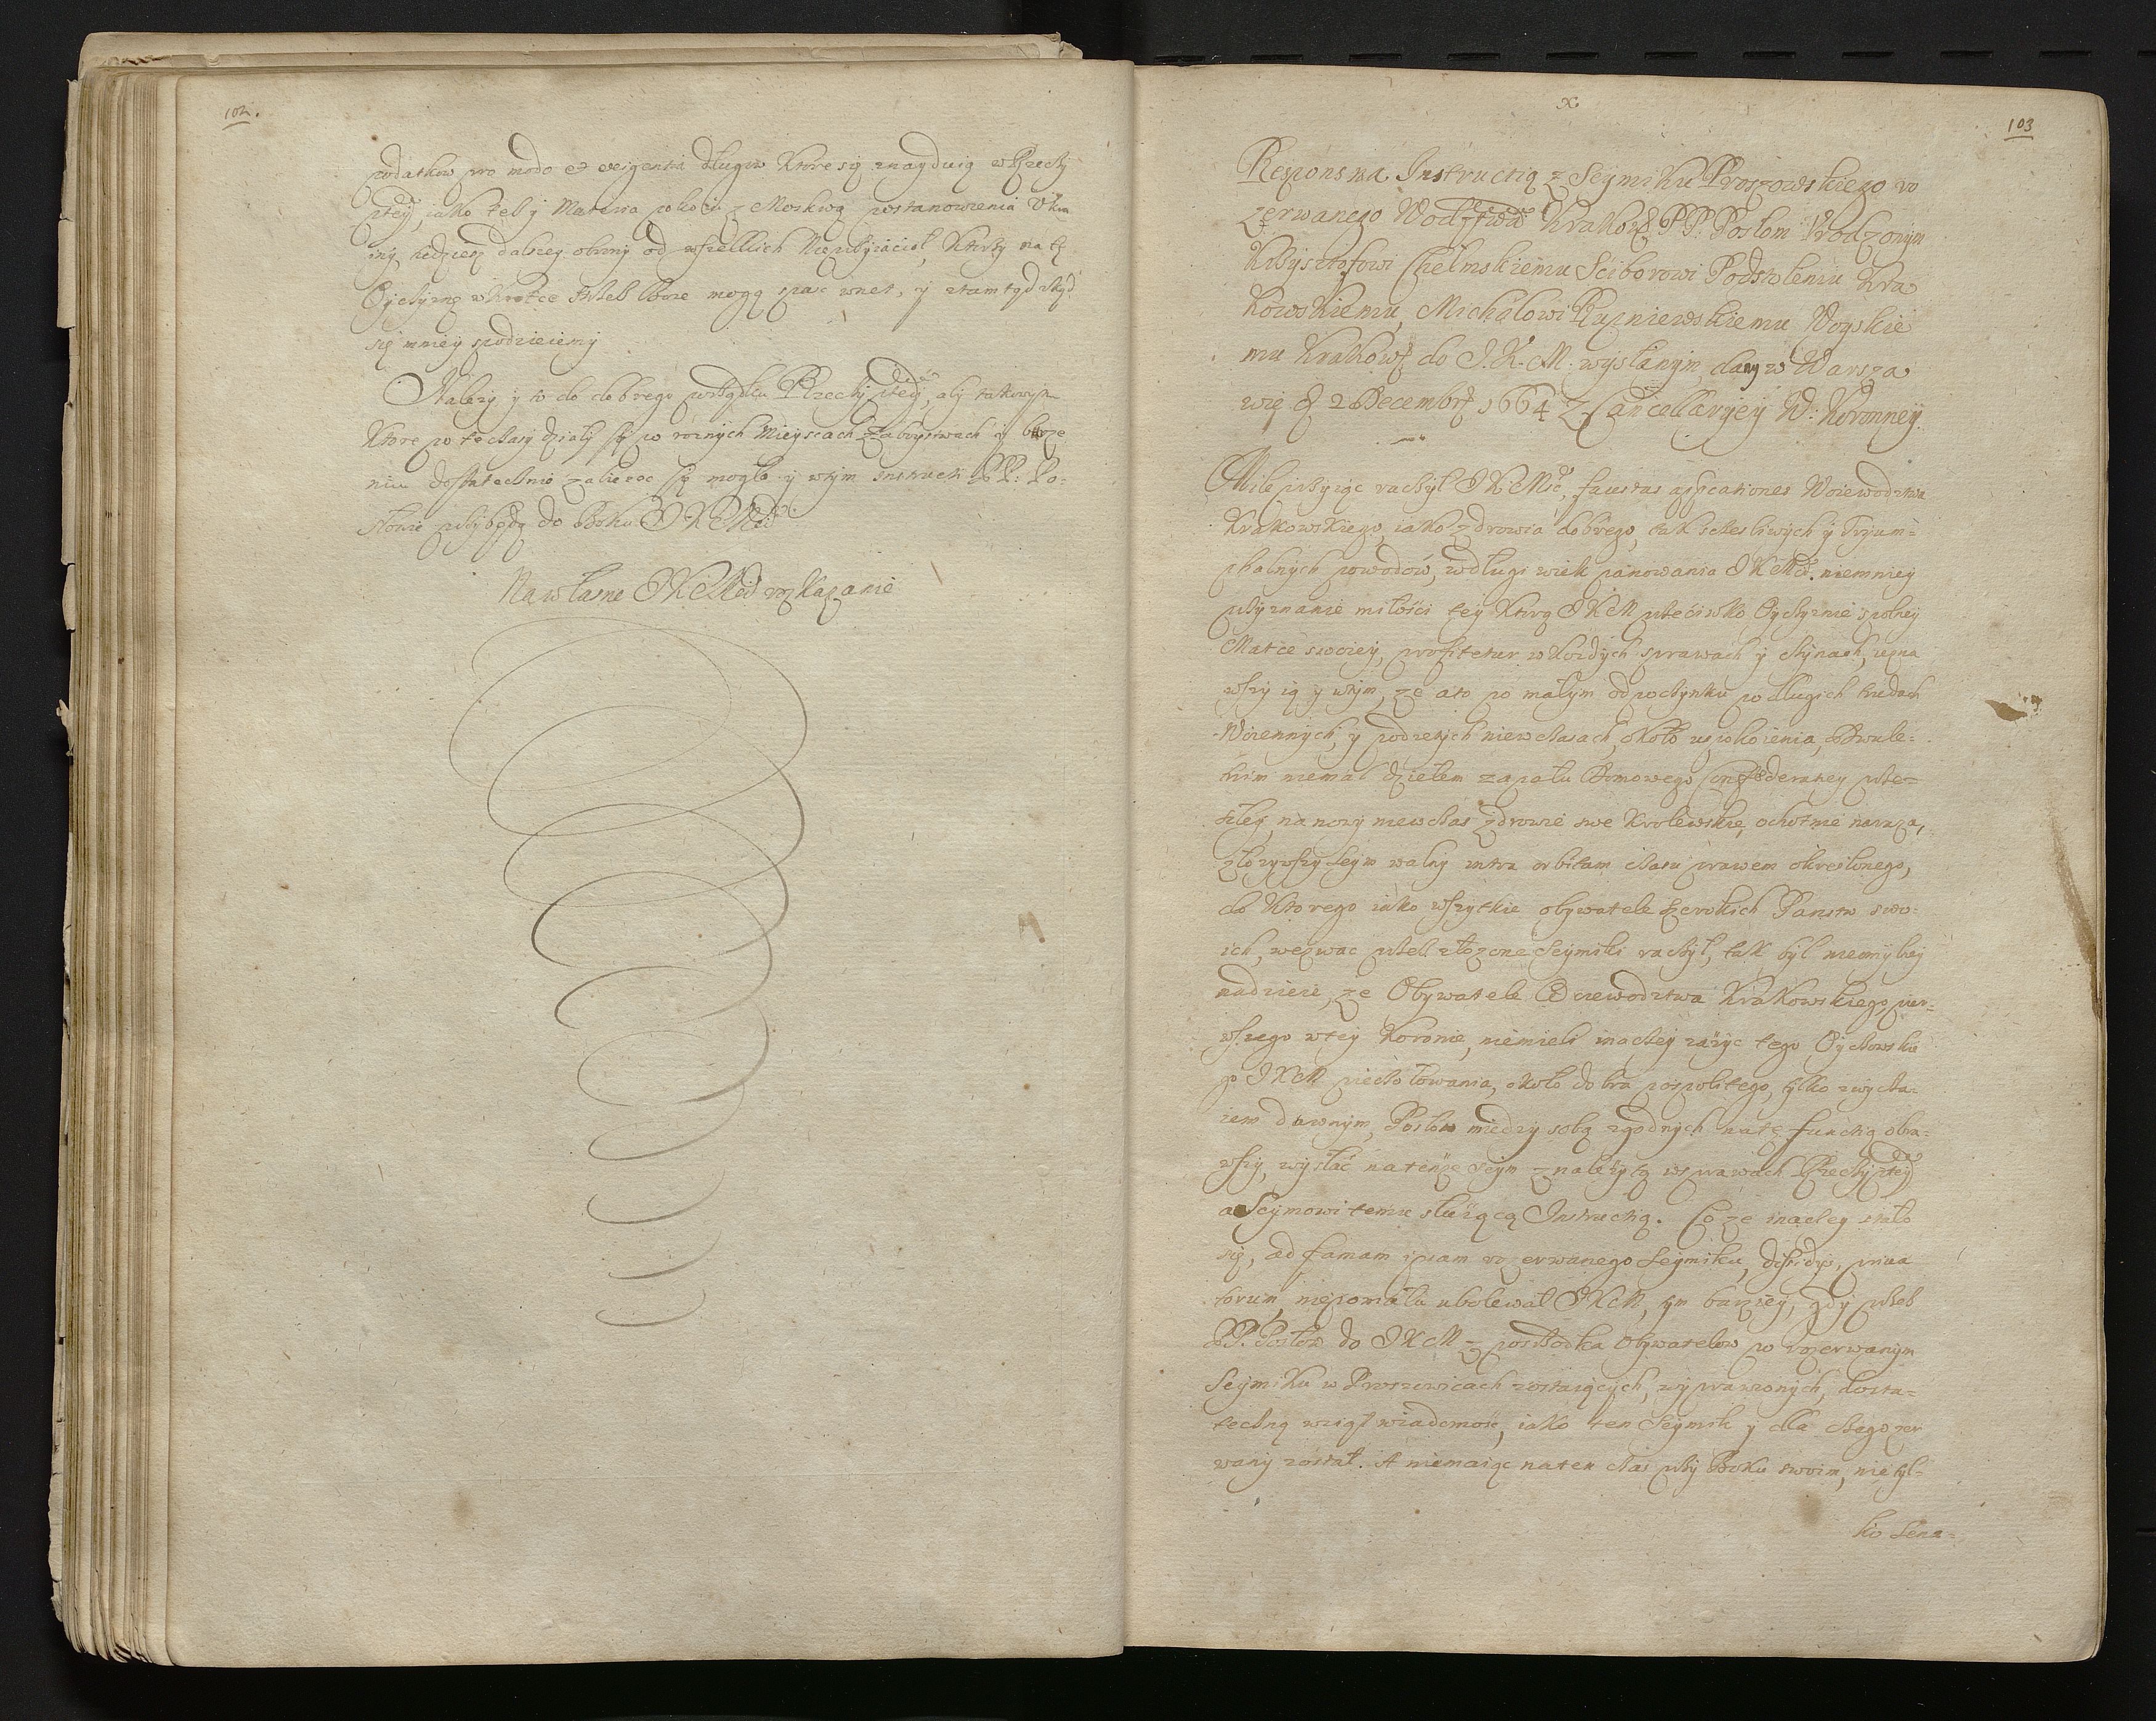 102.
podatkow pro modo et exigentia długow ktore się znayduią w Rzeczy
ptey, iako też y Materia pokoiu z Moskwą postanowienia
się, będziesz dalszey obrony od wszelkich Nieprzyiacioł, ktorzy na tę
Oyczyznę wkrotce przes Boze mogą spasc wnet, y ztamtąd zkąd
się mniey spodziewemy
Należy y to do dobrego porządku Rzeczy ptey, aby
Ktore po te czasy działy się po roznych Mieyscach Zaboystwach y
niu dostatecznie zabierec się mogło y w tym instructi PP: Po-
słowie przybędą do Boku J K Mci
Na własne J K Mci rozkazanie
x
103
Respons na Instructią z Seymiku Proszowskiego ro
zerwanego Wodztwa Krakow. PP. Posłom Urodzonym
Krzysztofowi Chełmskiemu Sciborowi Podstolemu Kra
kowskiemu, Michałowi Rupniewskiemu Woyskie
mu Krakows. do J. K. M. wysłanym, dany w Warsza
wie d 2 Decembr 1664 Z Cancellaryey W: Koronney.
Mile przyiąc raczył J K Mść, faustas apprecationes Woiewodztwa
Krakowskiego, iako zdrowia dobrego, tak szczesliwych y Tryum-
phalnych powodow, w długi wiek panowania J K Mci. niemniey
przyznanie miłości tey ktorą J K M przeciwko Oyczyznie spolney
Matce swoiey, profitetur w kożdych sprawach y czynach, uzna
wszy ią y w tym, ze ato po małym odpoczynku po długich trudach
Woiennych, y podiętych niewczasach, około uspokoienia, Dwule-
tnim niemal dziełem zapału Domowego Confederatney prze-
szłey, na nowy niewczas zdrowie swe Krolewskie, ochotnie naraza,
złozywszy Seym walny intra orbitam czasu prawem okreslonego,
do Ktorego iako wszytkie obywatele szerokich Panstw swo-
ich, wezwac przes złozone Seymiki raczył, tak był nieomylney
nadzieie, ze Obywatele Woiewodztwa Krakowskiego, pier-
wszego w tey Koronie, niemieli inaczey zażyc tego Oyczowskie
go J K M pieczołowania, około dobra pospolitego, tylko zwycza-
iem dawnym, Posłow miedzy sobą zgodnych na tę functią obra-
wszy, wysłać na tenże Seym z należytą w sprawach Rzeczy ptey
a Seymowi temu służącą Instructią. Co ze inaczey stało
się, ad famam ipsam rozerwanego Seymiku, priua
torum, niepomału ubolewał J K M, tym barziey, gdy przes
PP. Posłow do J K M z posrzodka Obywatelow po rozerwanym
Seymiku w Proszowicach zostaiących, wyprawionych, dosta-
teczną wziął wiadomość, iako ten Seymik y dla czego zer
wany został. A niemaiąc na ten czas przy Boku swoim, nie tyl-
ko Sena-